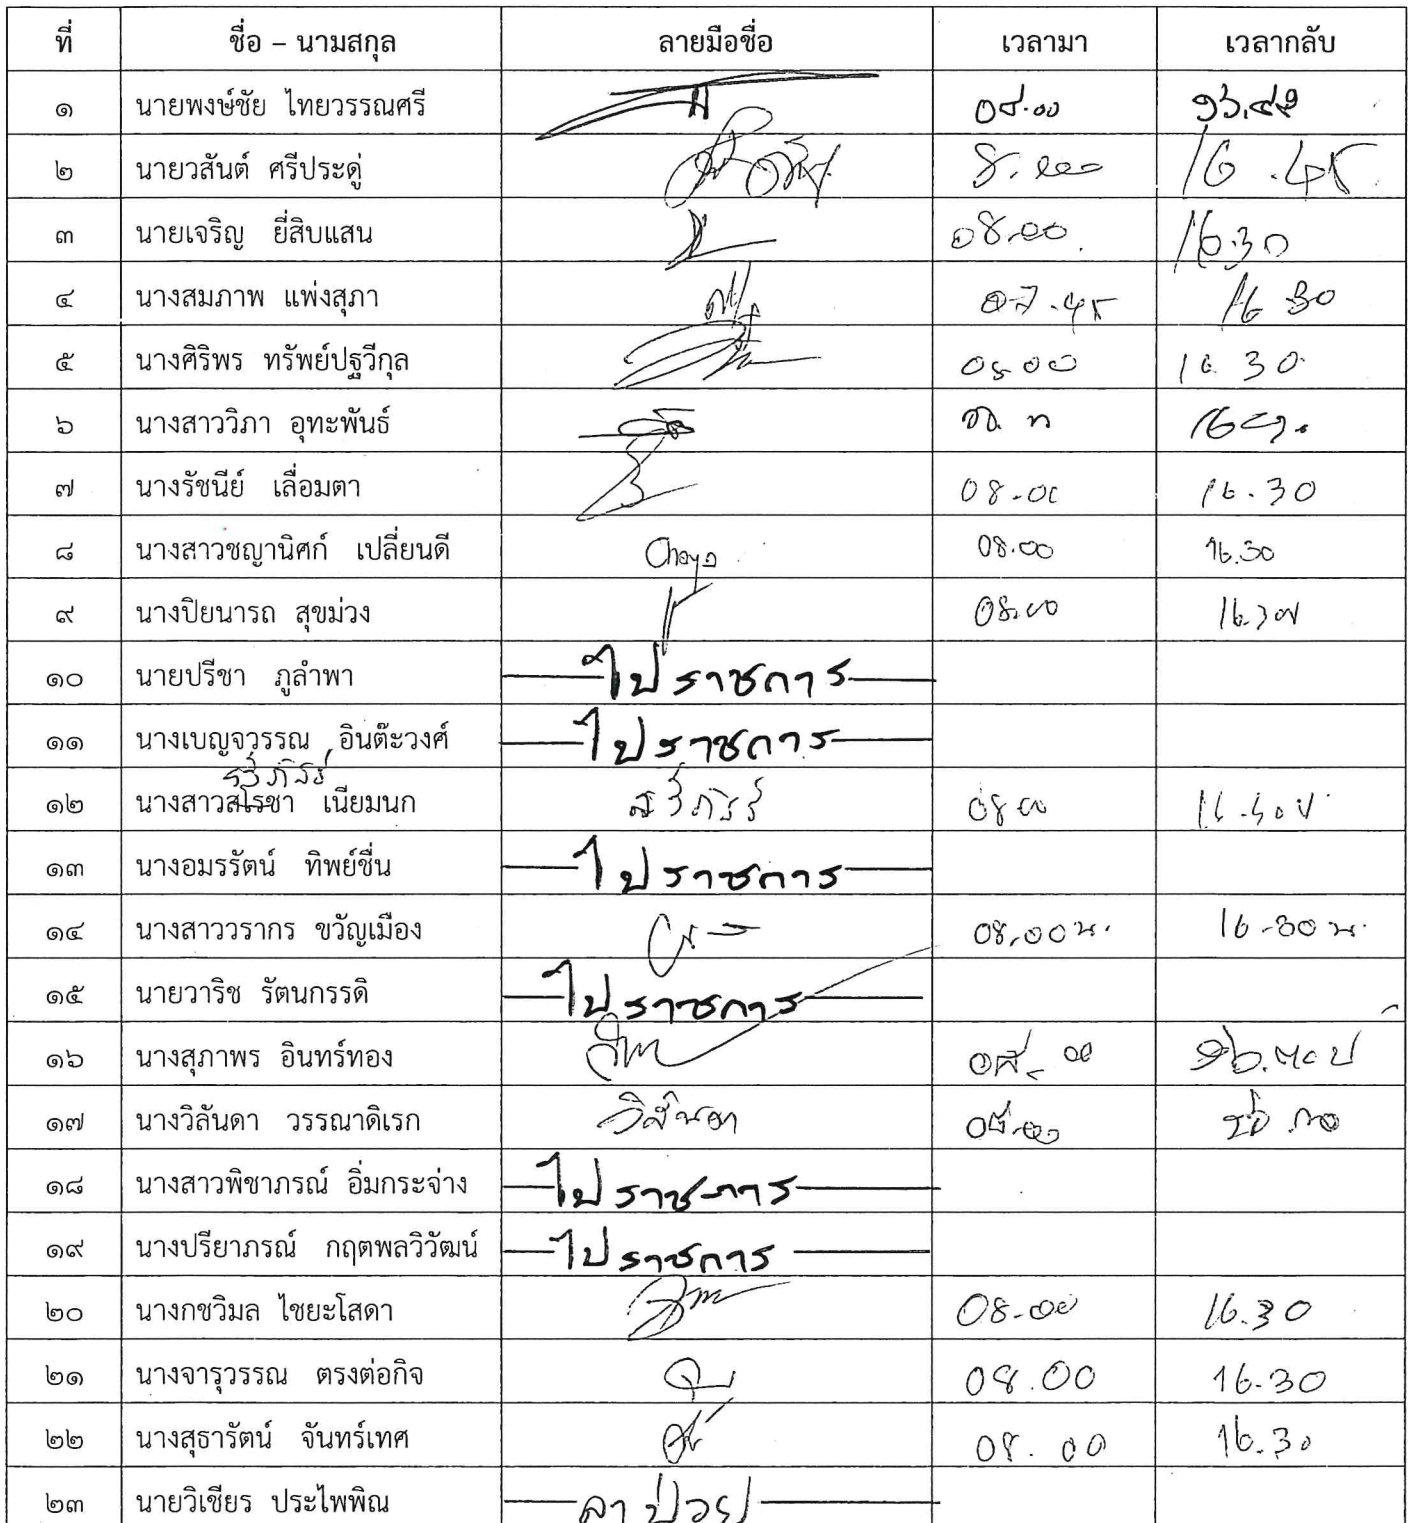 ที่ ชื่อ – นามสกุล ลายมือชื่อ เวลามา เวลากลับ
๑ นายพงษ์ชัย ไทยวรรณศรี ๐๘.๐๐ ๑๖.๔๙
๒ นายวสันต์ ศรีประดู่ 8.00 16.45
๓ นายเจริญ ยี่สิบแสน 08.00 16.30
๔ นางสมภาพ แพ่งสุภา 07.45 16 30
๕ นางศิริพร ทรัพย์ปฐวีกุล 08 00 16 30
๖ นางสาววิภา อุทะพันธ์
๗ นางรัชนีย์ เลื่อมตา 08.00 16.30
๘ นางสาวชญานิศก์ เปลี่ยนดี Chaya 08.00 16.30
๙ นางปิยนารถ สุขม่วง 08.00
๑๐ นายปรีชา ภูลำพา ไปราชการ
๑๑ นางเบญจวรรณ อินต๊ะวงศ์ ไปราชการ
๑๒ นางสาวสโรชา เนียมนก 08 00
๑๓ นางอมรรัตน์ ทิพย์ชื่น ไปราชการ
๑๔ นางสาววรากร ขวัญเมือง 08.00 น. 16.30 น.
๑๕ นายวาริช รัตนกรรดิ ไปราชการ
๑๖ นางสุภาพร อินทร์ทอง ๐๘.๐๐
๑๗ นางวิลันดา วรรณาดิเรก วิลันดา ๐๘.๐๐
๑๘ นางสาวพิชาภรณ์ อิ่มกระจ่าง ไปราชการ
๑๙ นางปรียาภรณ์ กฤตพลวิวัฒน์ ไปราชการ
๒๐ นางกชวิมล ไชยะโสดา 08.00 16.30
๒๑ นางจารุวรรณ ตรงต่อกิจ 08.00 16.30
๒๒ นางสุธารัตน์ จันทร์เทศ 08.00 16.30
๒๓ นายวิเชียร ประไพพิณ ลาป่วย